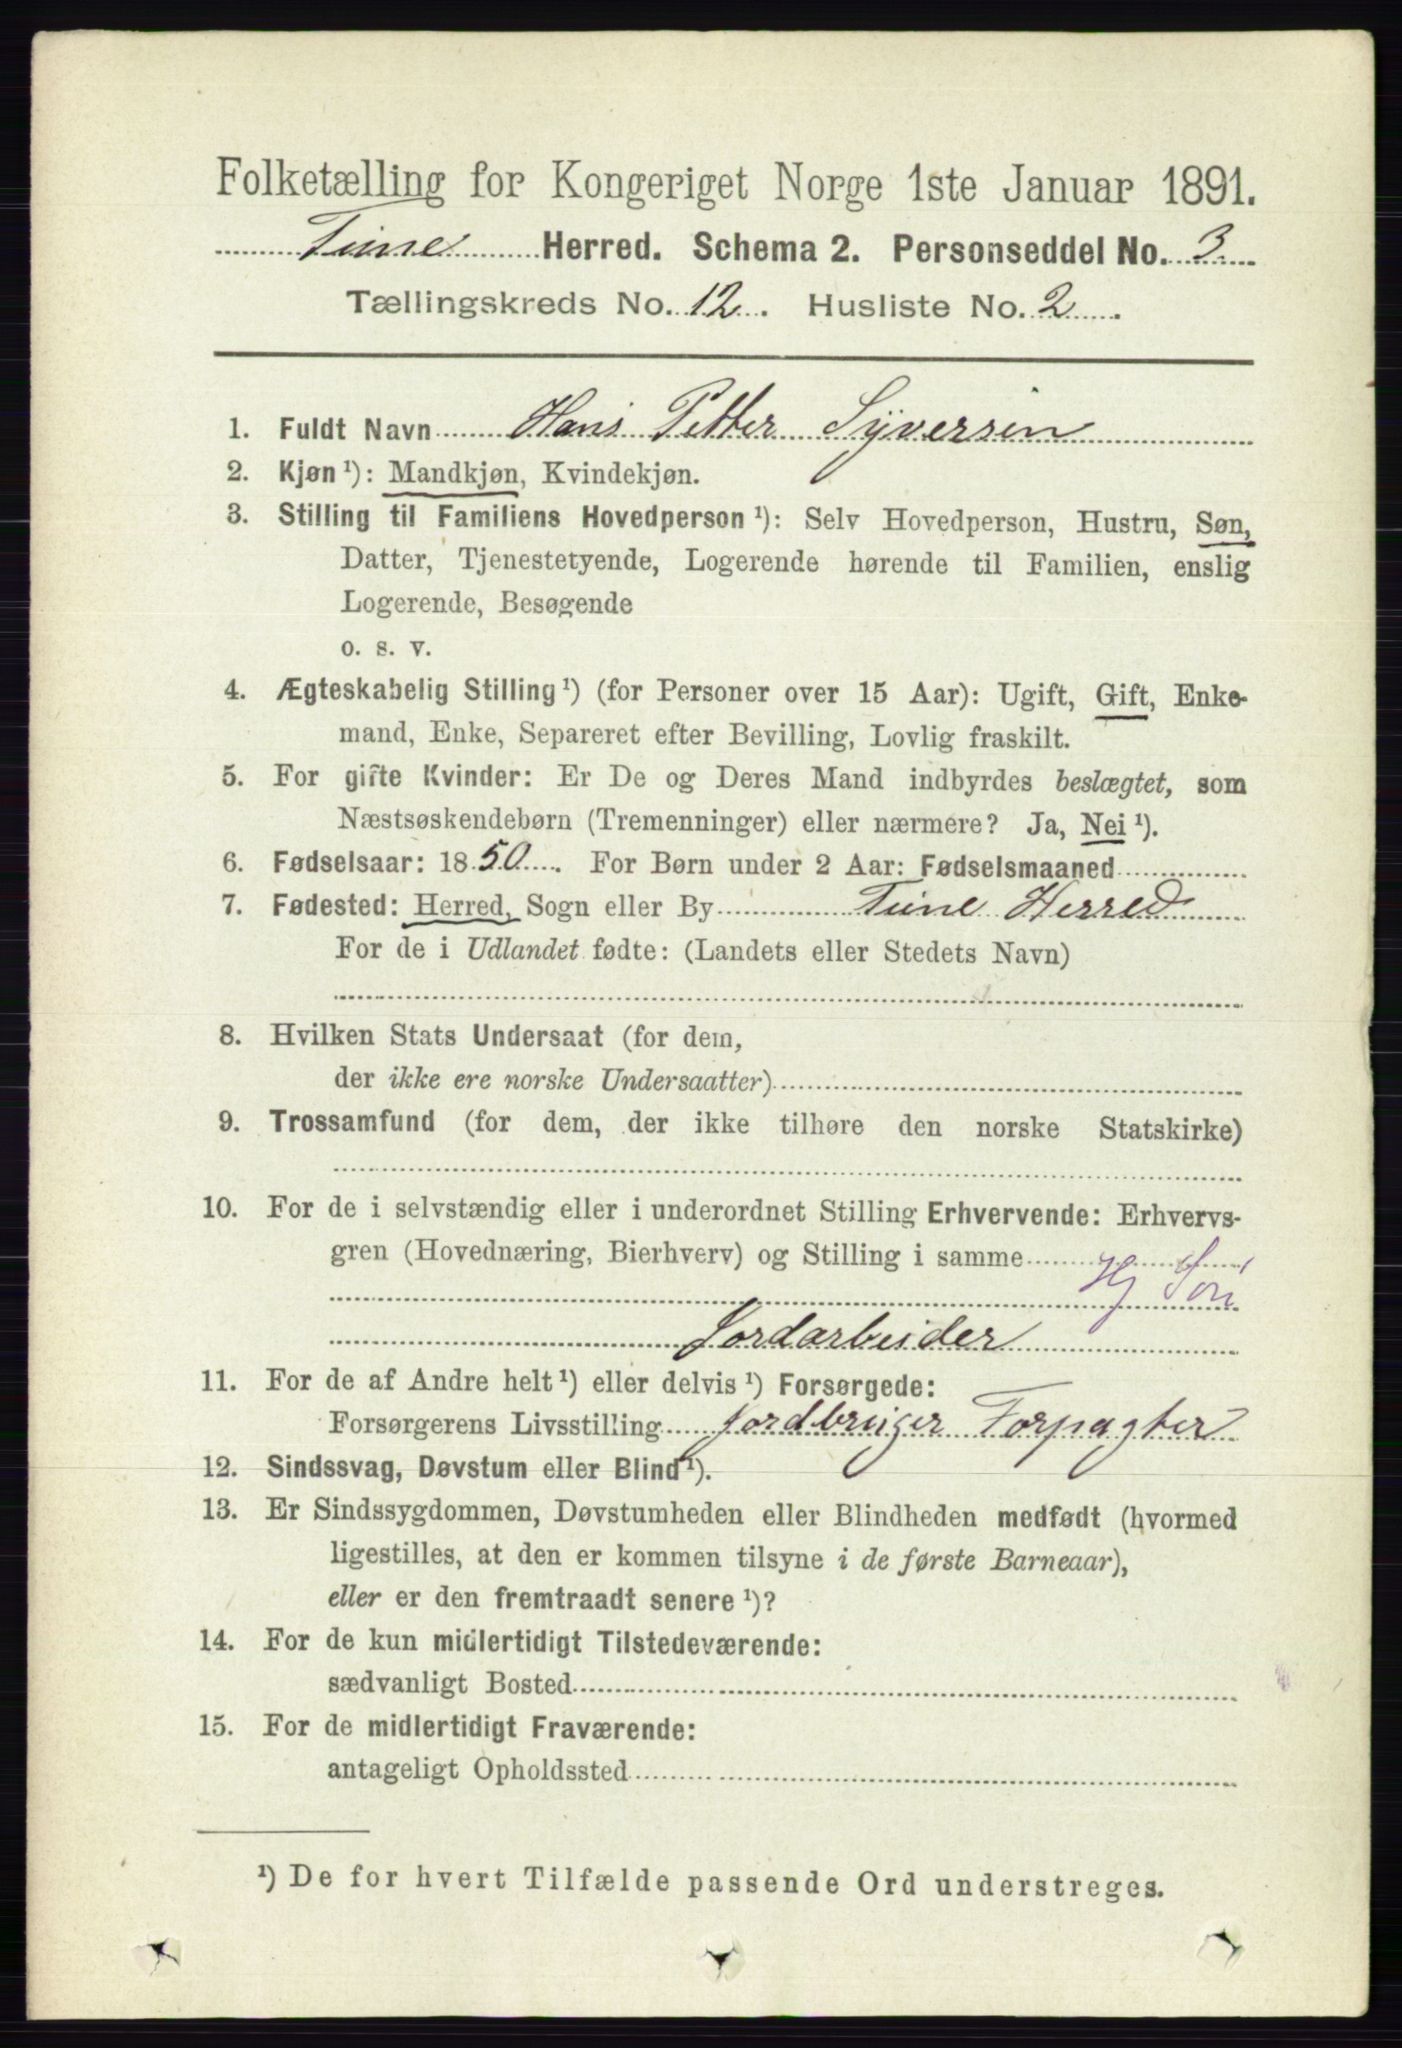 Folketælling for Kongeriget Norge 1ste Januar 1891.
Tune Herred. Schema 2. Personseddel No. 3
Tællingskreds No. 12. Husliste No. 2.
1. Fuldt Navn Hans Petter Syversen
2. Kjøn ¹): Mandkjøn, Kvindekjøn.
3. Stilling til Familiens Hovedperson ¹): Selv Hovedperson, Hustru, Søn,
Datter, Tjenestetyende, Logerende hørende til Familien, enslig
Logerende, Besøgende
o. s. v.
4. Ægteskabelig Stilling ¹) (for Personer over 15 Aar): Ugift, Gift, Enke-
mand, Enke, Separeret efter Bevilling, Lovlig fraskilt.
5. For gifte Kvinder: Er De og Deres Mand indbyrdes beslægtet, som
Næstsøskendebørn (Tremenninger) eller nærmere? Ja, Nei ¹).
6. Fødselsaar: 1850. For Børn under 2 Aar: Fødselsmaaned
7. Fødested: Herred, Sogn eller By Tune Herred
For de i Udlandet fødte: (Landets eller Stedets Navn)
8. Hvilken Stats Undersaat (for dem,
der ikke ere norske Undersaatter)
9. Trossamfund (for dem, der ikke tilhøre den norske Statskirke)
10. For de i selvstændig eller i underordnet Stilling Erhvervende: Erhvervs-
gren (Hovednæring, Bierhverv) og Stilling i samme
Hj Søn
Jordarbeider
11. For de af Andre helt ¹) eller delvis ¹) Forsørgede:
Forsørgerens Livsstilling Jordbruger Forpagter
12. Sindssvag, Døvstum eller Blind ¹).
13. Er Sindssygdommen, Døvstumheden eller Blindheden medfødt (hvormed
ligestilles, at den er kommen tilsyne i de første Barneaar),
eller er den fremtraadt senere ¹)?
14. For de kun midlertidigt Tilstedeværende:
sædvanligt Bosted
15. For de midlertidigt Fraværende:
antageligt Opholdssted
¹) De for hvert Tilfælde passende Ord understreges.